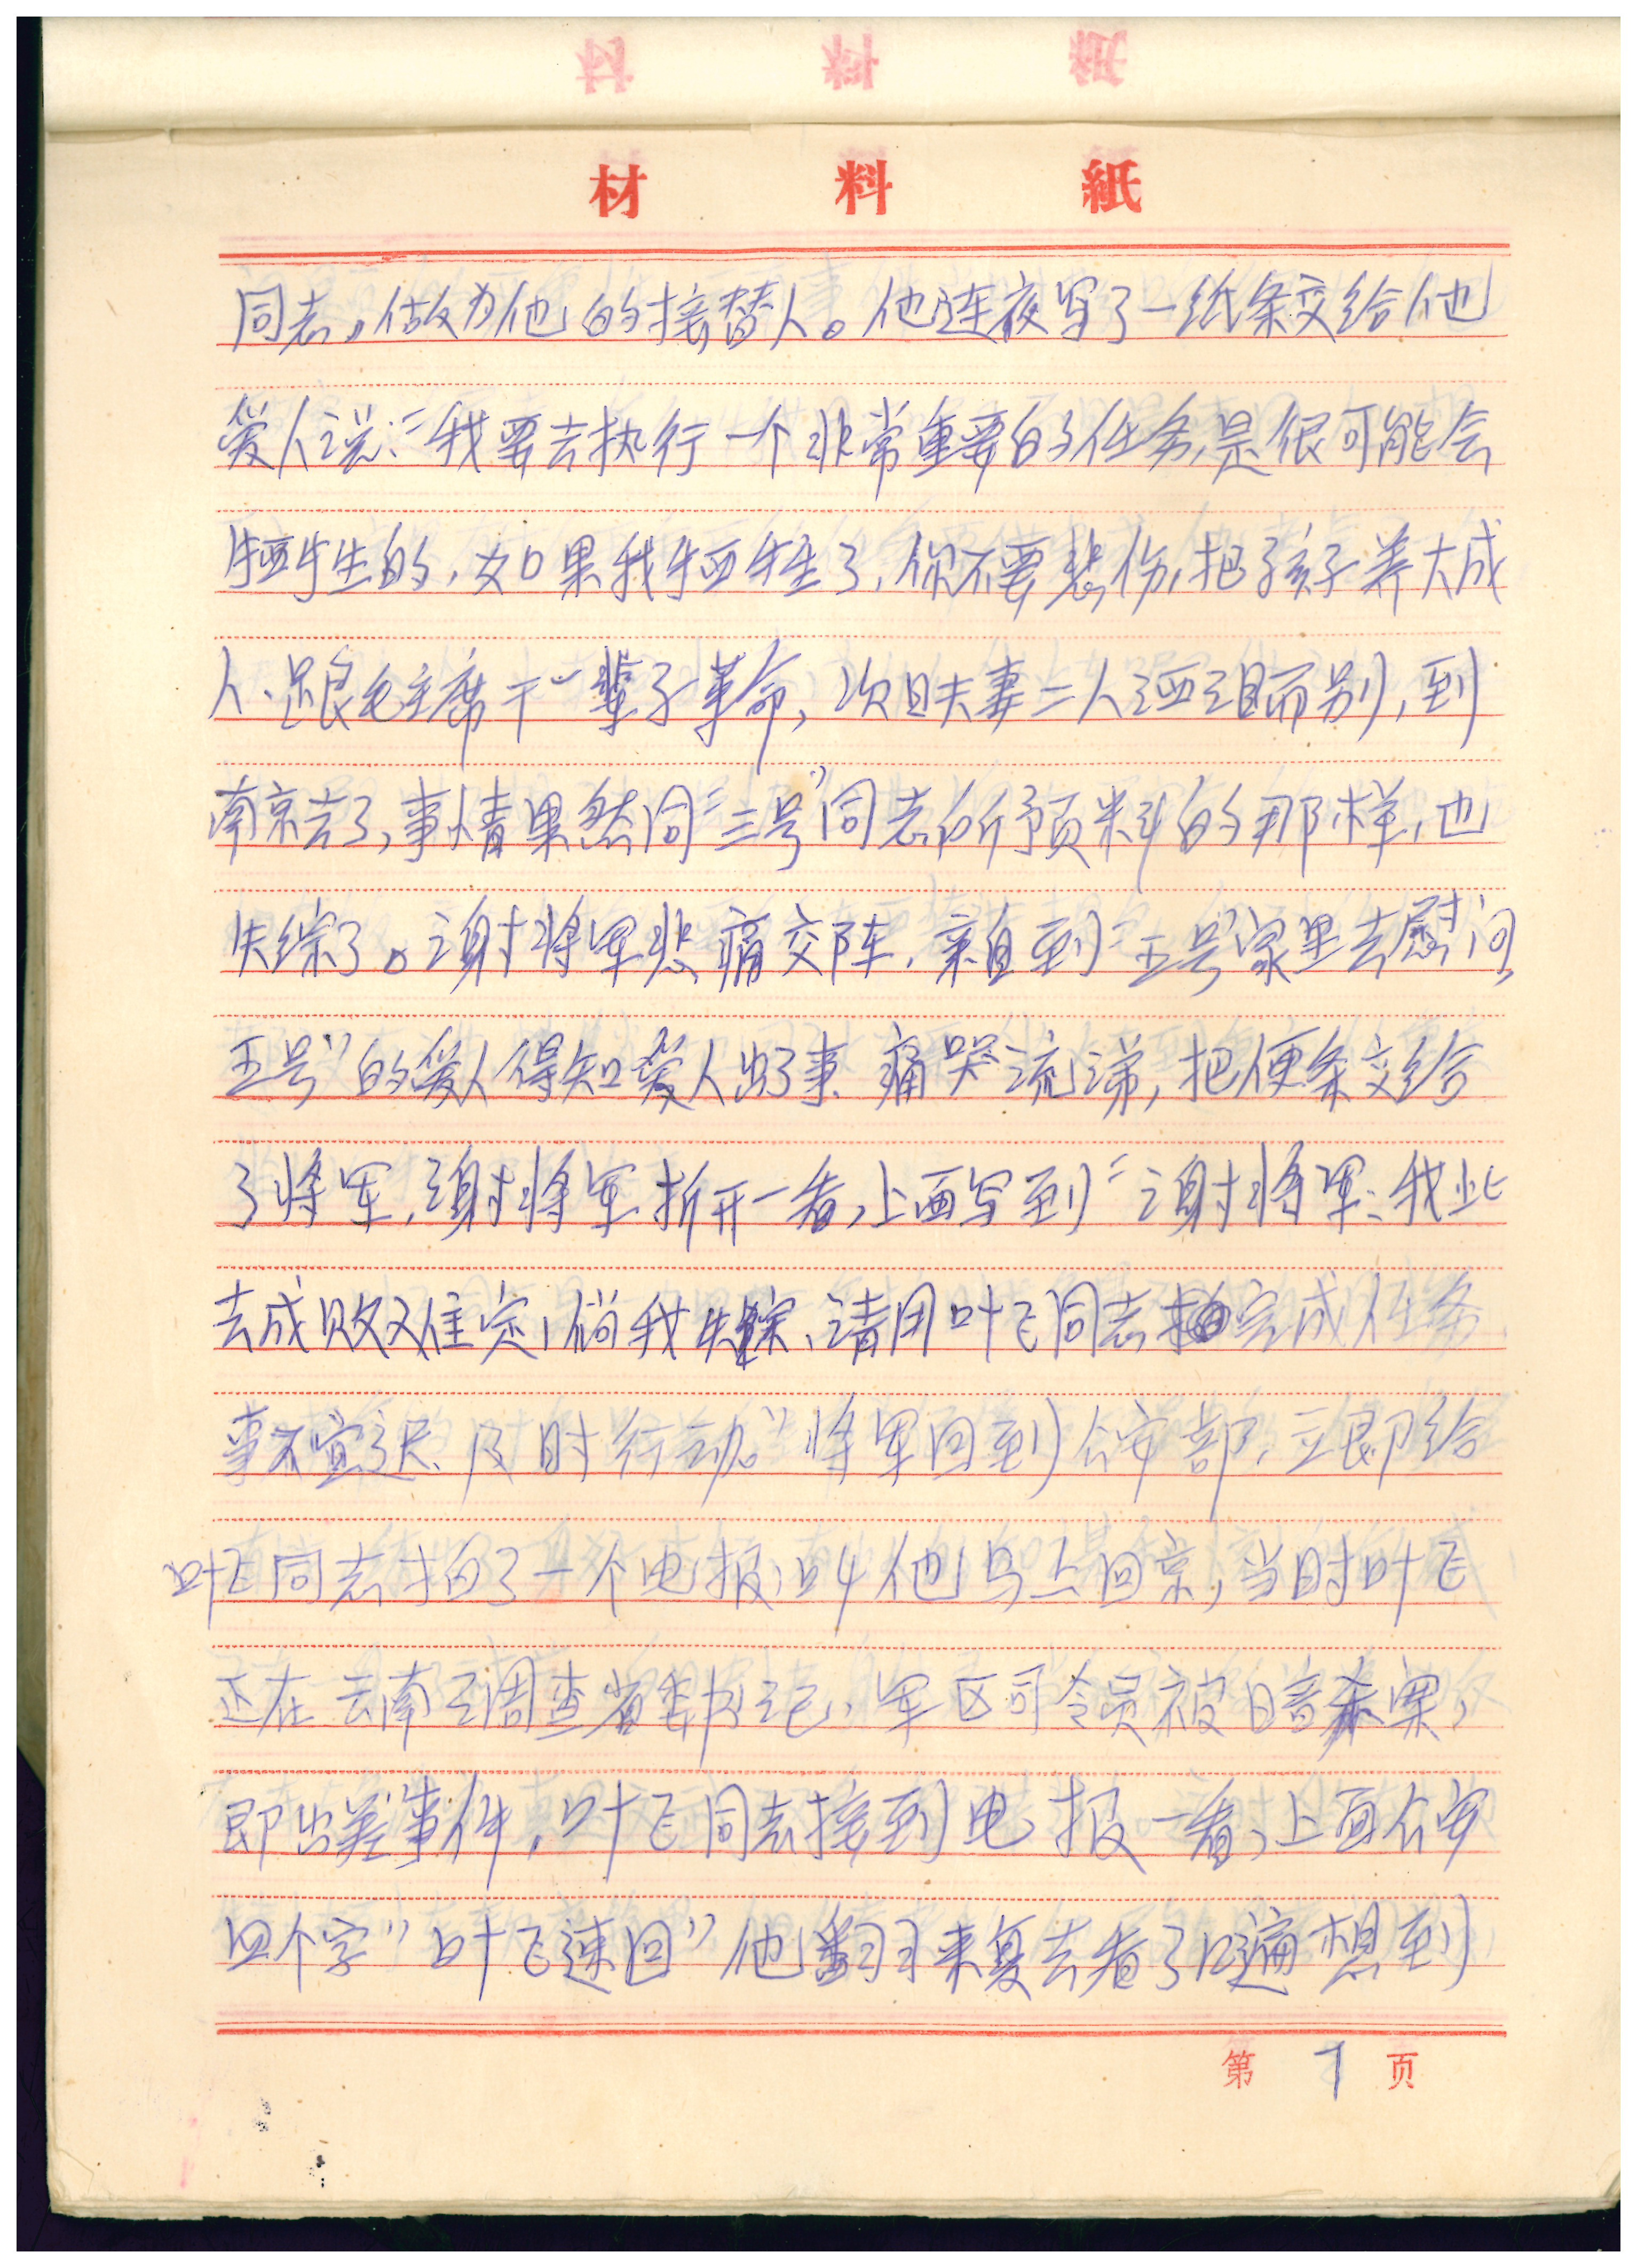 材料紙
同志，做为他的接替人。他连夜写了一纸条交给他
爱人说：“我要去执行一个非常重要的任务，是很可能会
牺牲的，如果我牺牲了，你不要悲伤，把孩子养大成
人、跟毛主席干一辈子革命，次日夫妻二人洒泪而别，到
南京去了，事情果然同“三号”同志所预料的那样，也
失综了。谢将军悲痛交阵，亲自到“五号”家里去慰问，
五号”的爱人得知爱人出了事、痛哭流涕，把便条交给
了将军，谢将军折开一看，上面写到“谢将军：我此
去成败难定，倘我失踪、请用叶飞同志完成任务
事不宜迟、及时行动”将军回到公安部，立即给
叶飞同志拍了一个电报，叫他马上回京，当时叶飞
还在云南调查省委书记、军区司令员被暗杀案，
即出差事件，叶飞同志接到电报一看，上面公安
四个字”叶飞速回”他翻来复去看了几遍想到
第 7 页